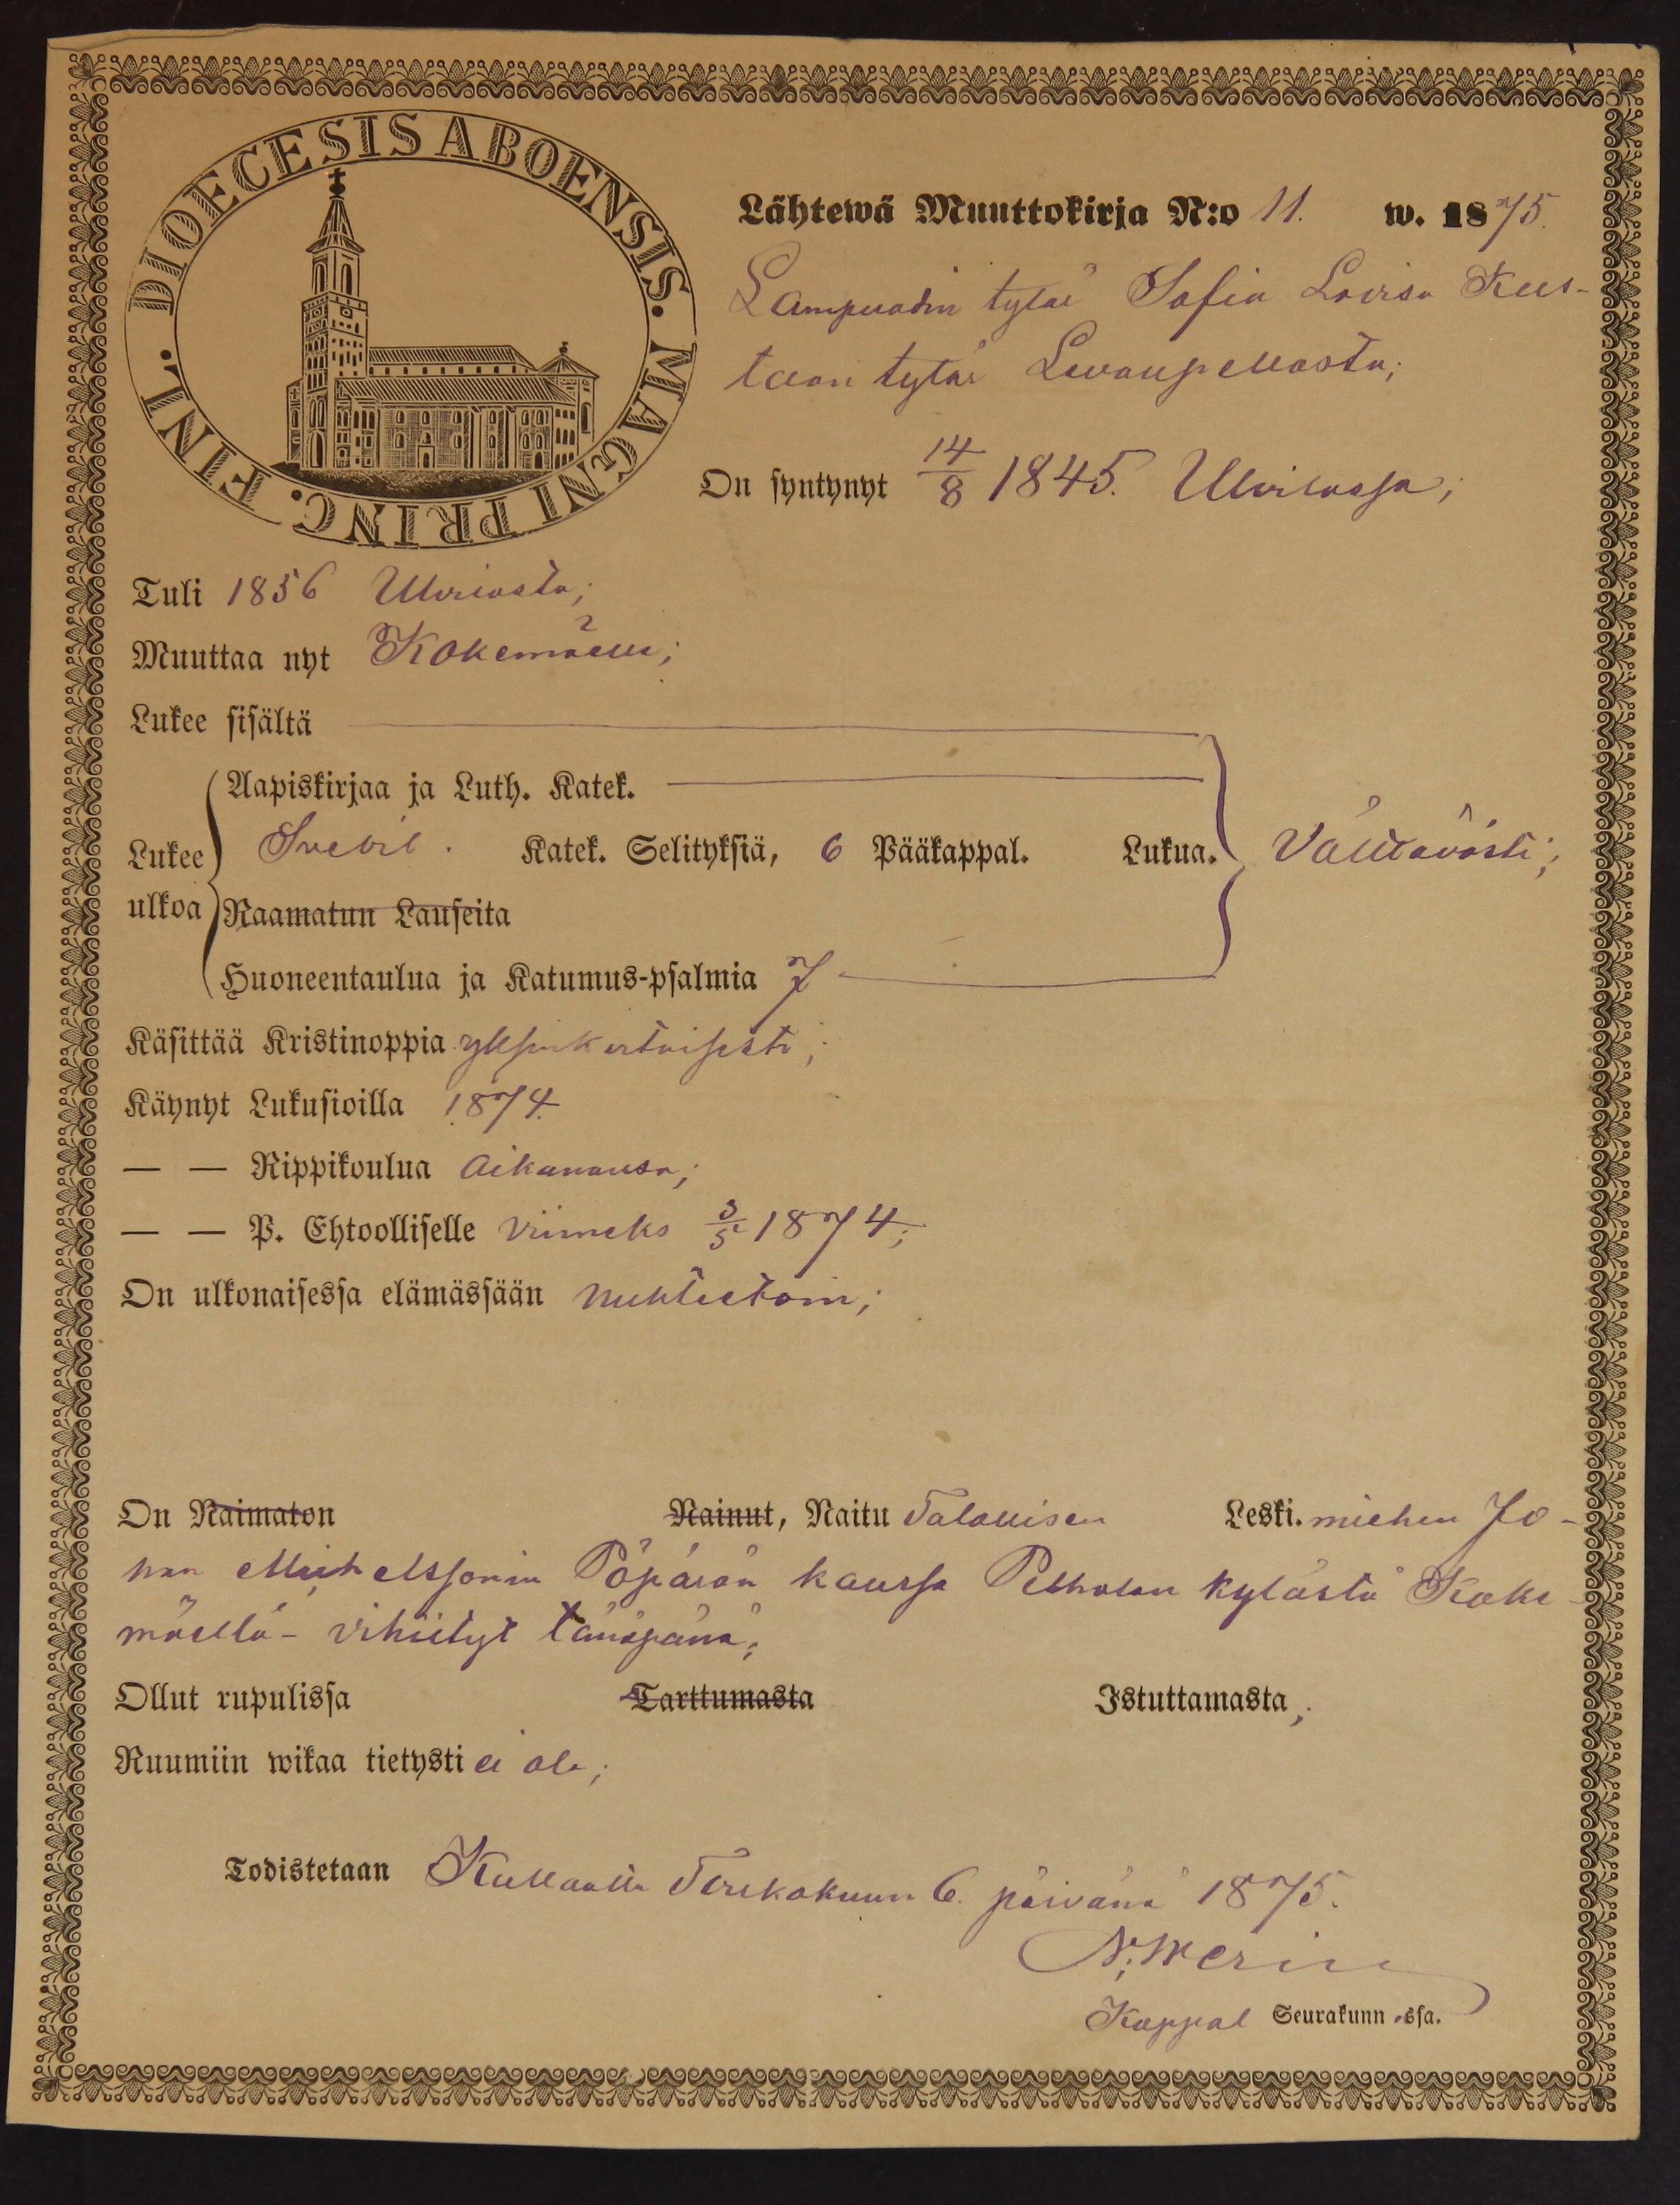 DIOECESIS ABOENSIS. MAGNI PRINC. FINL.
Lähtewä Muuttokirja N:o 11. w. 1875.
Lampuodin tytär Sofia Lovisa Kus-
taan tytär Levanpellosta;
On syntynyt 14/8 1845. Ulvilassa;
Tuli 1856 Ulvilasta;
Muuttaa nyt Kokemäelle;
Lukee sisältä
Aapiskirjaa ja Luth. Katek.
Lukee Svebil. Katek. Selityksiä, 6 Pääkappal. Lukua. Välttävästi;
ulkoa Raamatun Lauseita
Huoneentaulua ja Katumus-psalmia 7
Käsittää Kristinoppia yksinkertaisesti;
Käynyt Lukusioilla 1874.
— — Rippikoulua aikanansa;
— — P. Ehtoolliselle viimeks 3/5 1874;
On ulkonaisessa elämässään nuhteetoin;
On Naimaton Nainut, Naitu Talollisen Leski. miehen Jo-
han Michelssonin Pöpärön kanssa Pelholan kylästä Koke-
mäellä - vihityt tänäpänä;
Ollut rupulissa Tarttumasta Istuttamasta;
Ruumiin wikaa tietysti ei ole;
Todistetaan Kullaalla Toukokuun 6. päivänä 1875.
Kappal Seurakunn ssa.